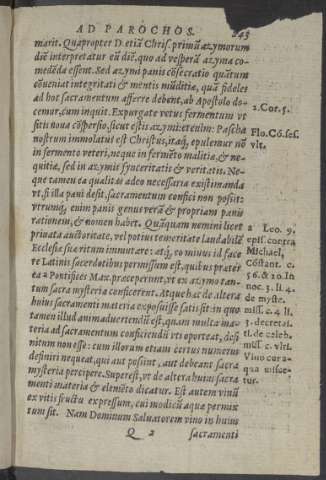 AD PAROCHOS. 243
marit. Quapropter D. etiā Chris. primū azymorum
diē interpretatur eū diē, quo ad vesperā azyma co-
medēda essent. Sed azymi panis cōsecratio quātum
cōueniat integritati & mentis mūditiæ, quā fideles
ad hoc sacramentum afferre debent, ab Apostolo do-
cemur, cum inquit. Expurgate vetus fermentum vt
sitis noua cōspersio, sicut estis azymi: etenim: Pascha
nostrum immolatus est Christus, itaq;, epulemur nō
in fermento veteri, neque in fermēto malitiæ, & ne-
quitiæ, sed in azymis synceritatis & veritatis. Ne-
que tamen ea qualitas adeo necessaria existimanda
vt, si illa pani desit, sacramentum confici non possit:
vtrumq;, enim panis genus verā & propriam panis
rationem, & nomen habet. Quāquam nemini licet
priuata auctoritate, vel potius temeritate laudabilē
Ecclesiæ suæ ritum immutare: atq;, eo minus id face
re Latinis sacerdotibus permissum est, quibus præter
ea a Pontifices Max. præceperunt, vt ex azymo tan-
tum sacra mysteria conficerent. Atque hæc de altera
huius sacramenti materia exposuisse satis sit: in quo
tamen illud animaduertendū est, quam multa ma-
teria ad sacramentum conficiendū vti oporteat, defi
nitum non esse: cum illorum etiam certus numerus
definiri nequeat, qui aut possint, aut debeant sacra
mysteria percipere. Superest, vt de altera huius sacra
menti materia & elemēto dicatur. Est autem vinū
ex vitis fructu expressum, cui modicū aquæ permix
tum sit. Nam Dominum Saluatorem vino in huius
Q 2 sacramenti
1. Cor. 5.
Flo. Cō. ses.
vlt.
a Leo. 9.
epist. contra
Michael,
Cōstant. c.
5. 6. & 20. In
noc. 3. li. 4.
de myste.
miss. c. 4. ll.
3. decretal.
ti. de celeb.
mis. c. vlti.
Vino cur a-
qua misce-
tur.